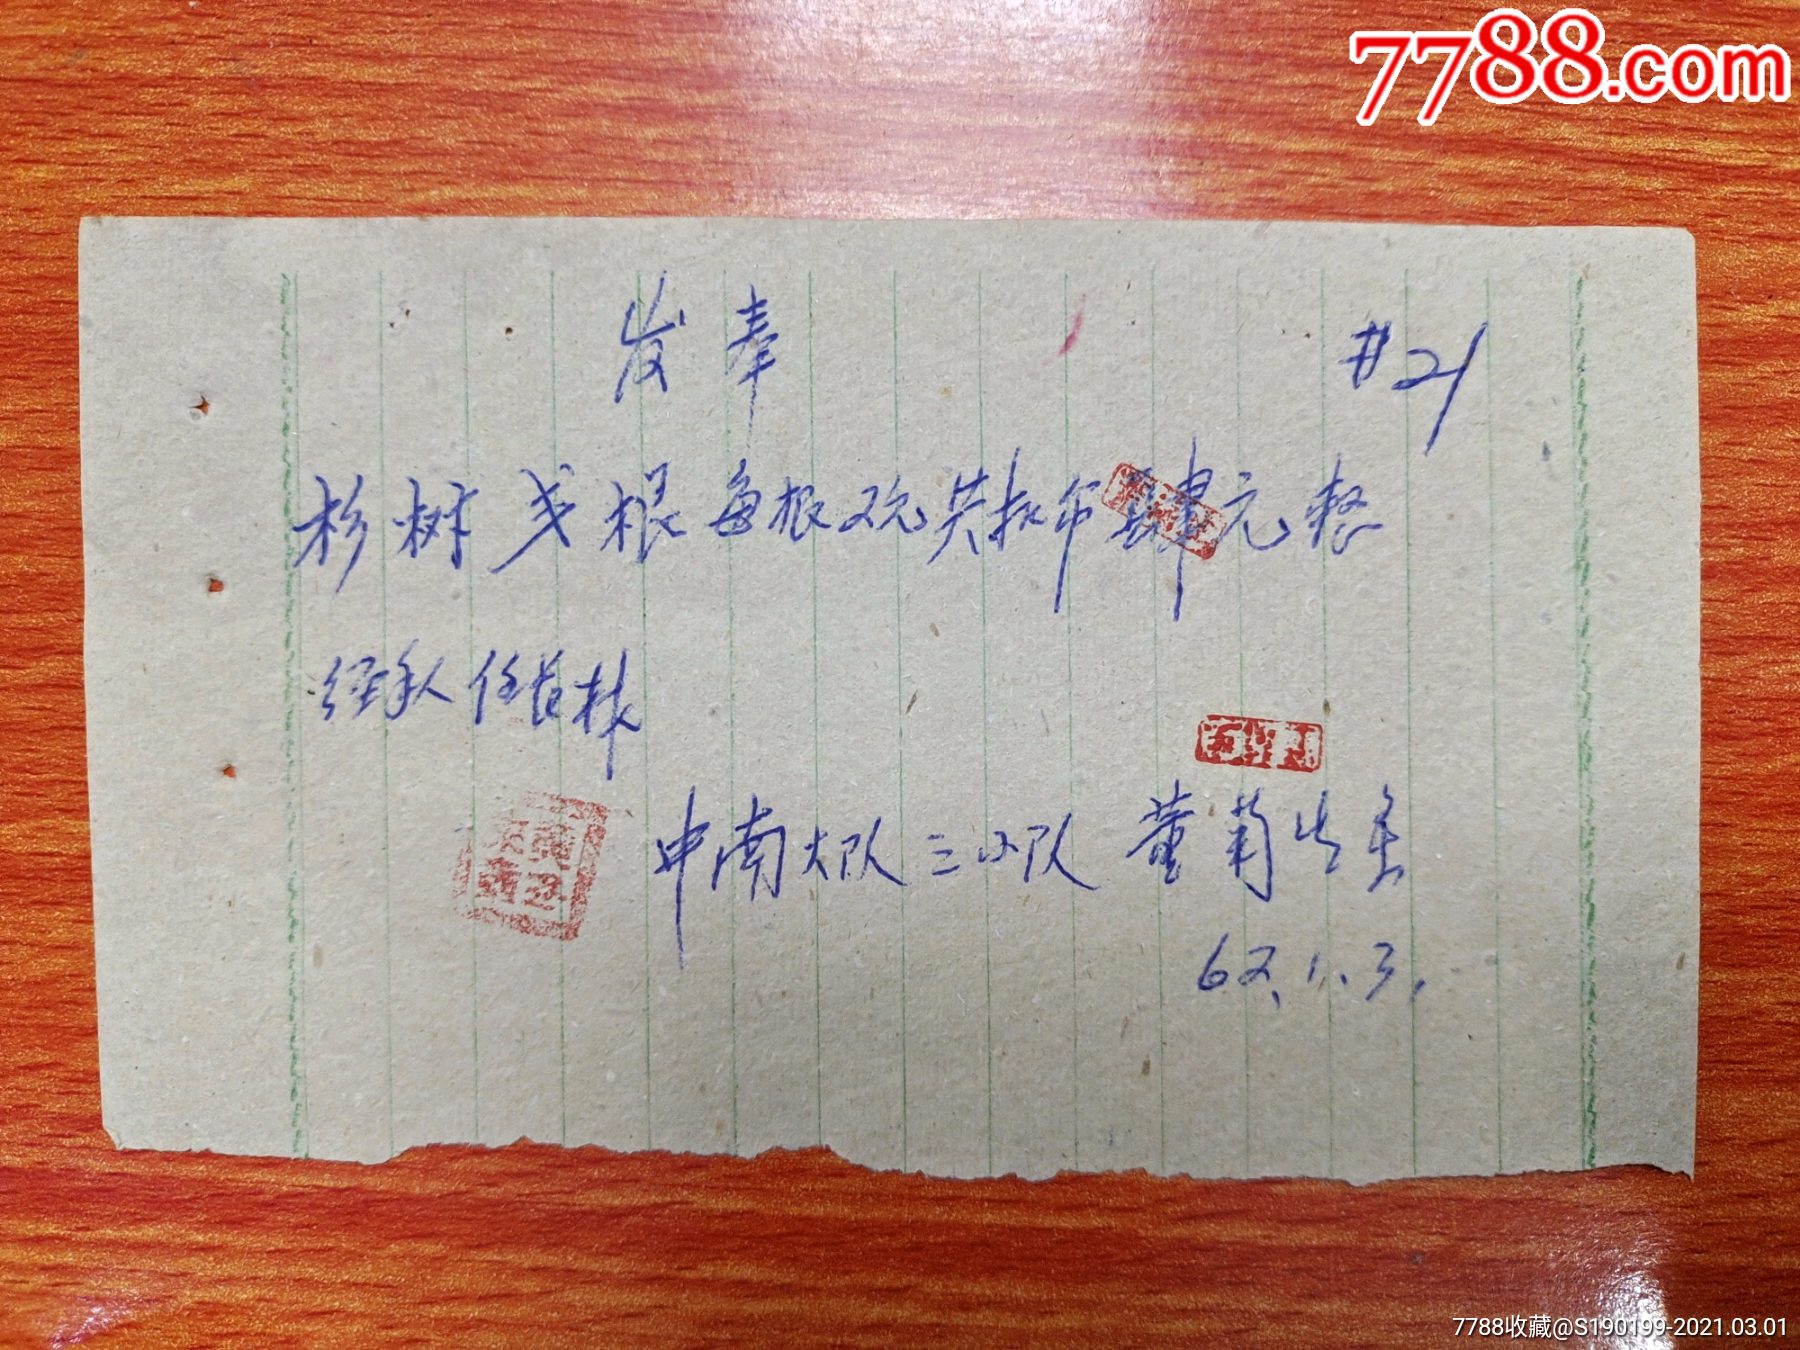 7788.com
发奉
#21
杉树弍根每根2元共扒币肆元整
经手人任昔林
中南大队三小队 董菊生条
62.1.3.
7788收藏@S190199-2021.03.01